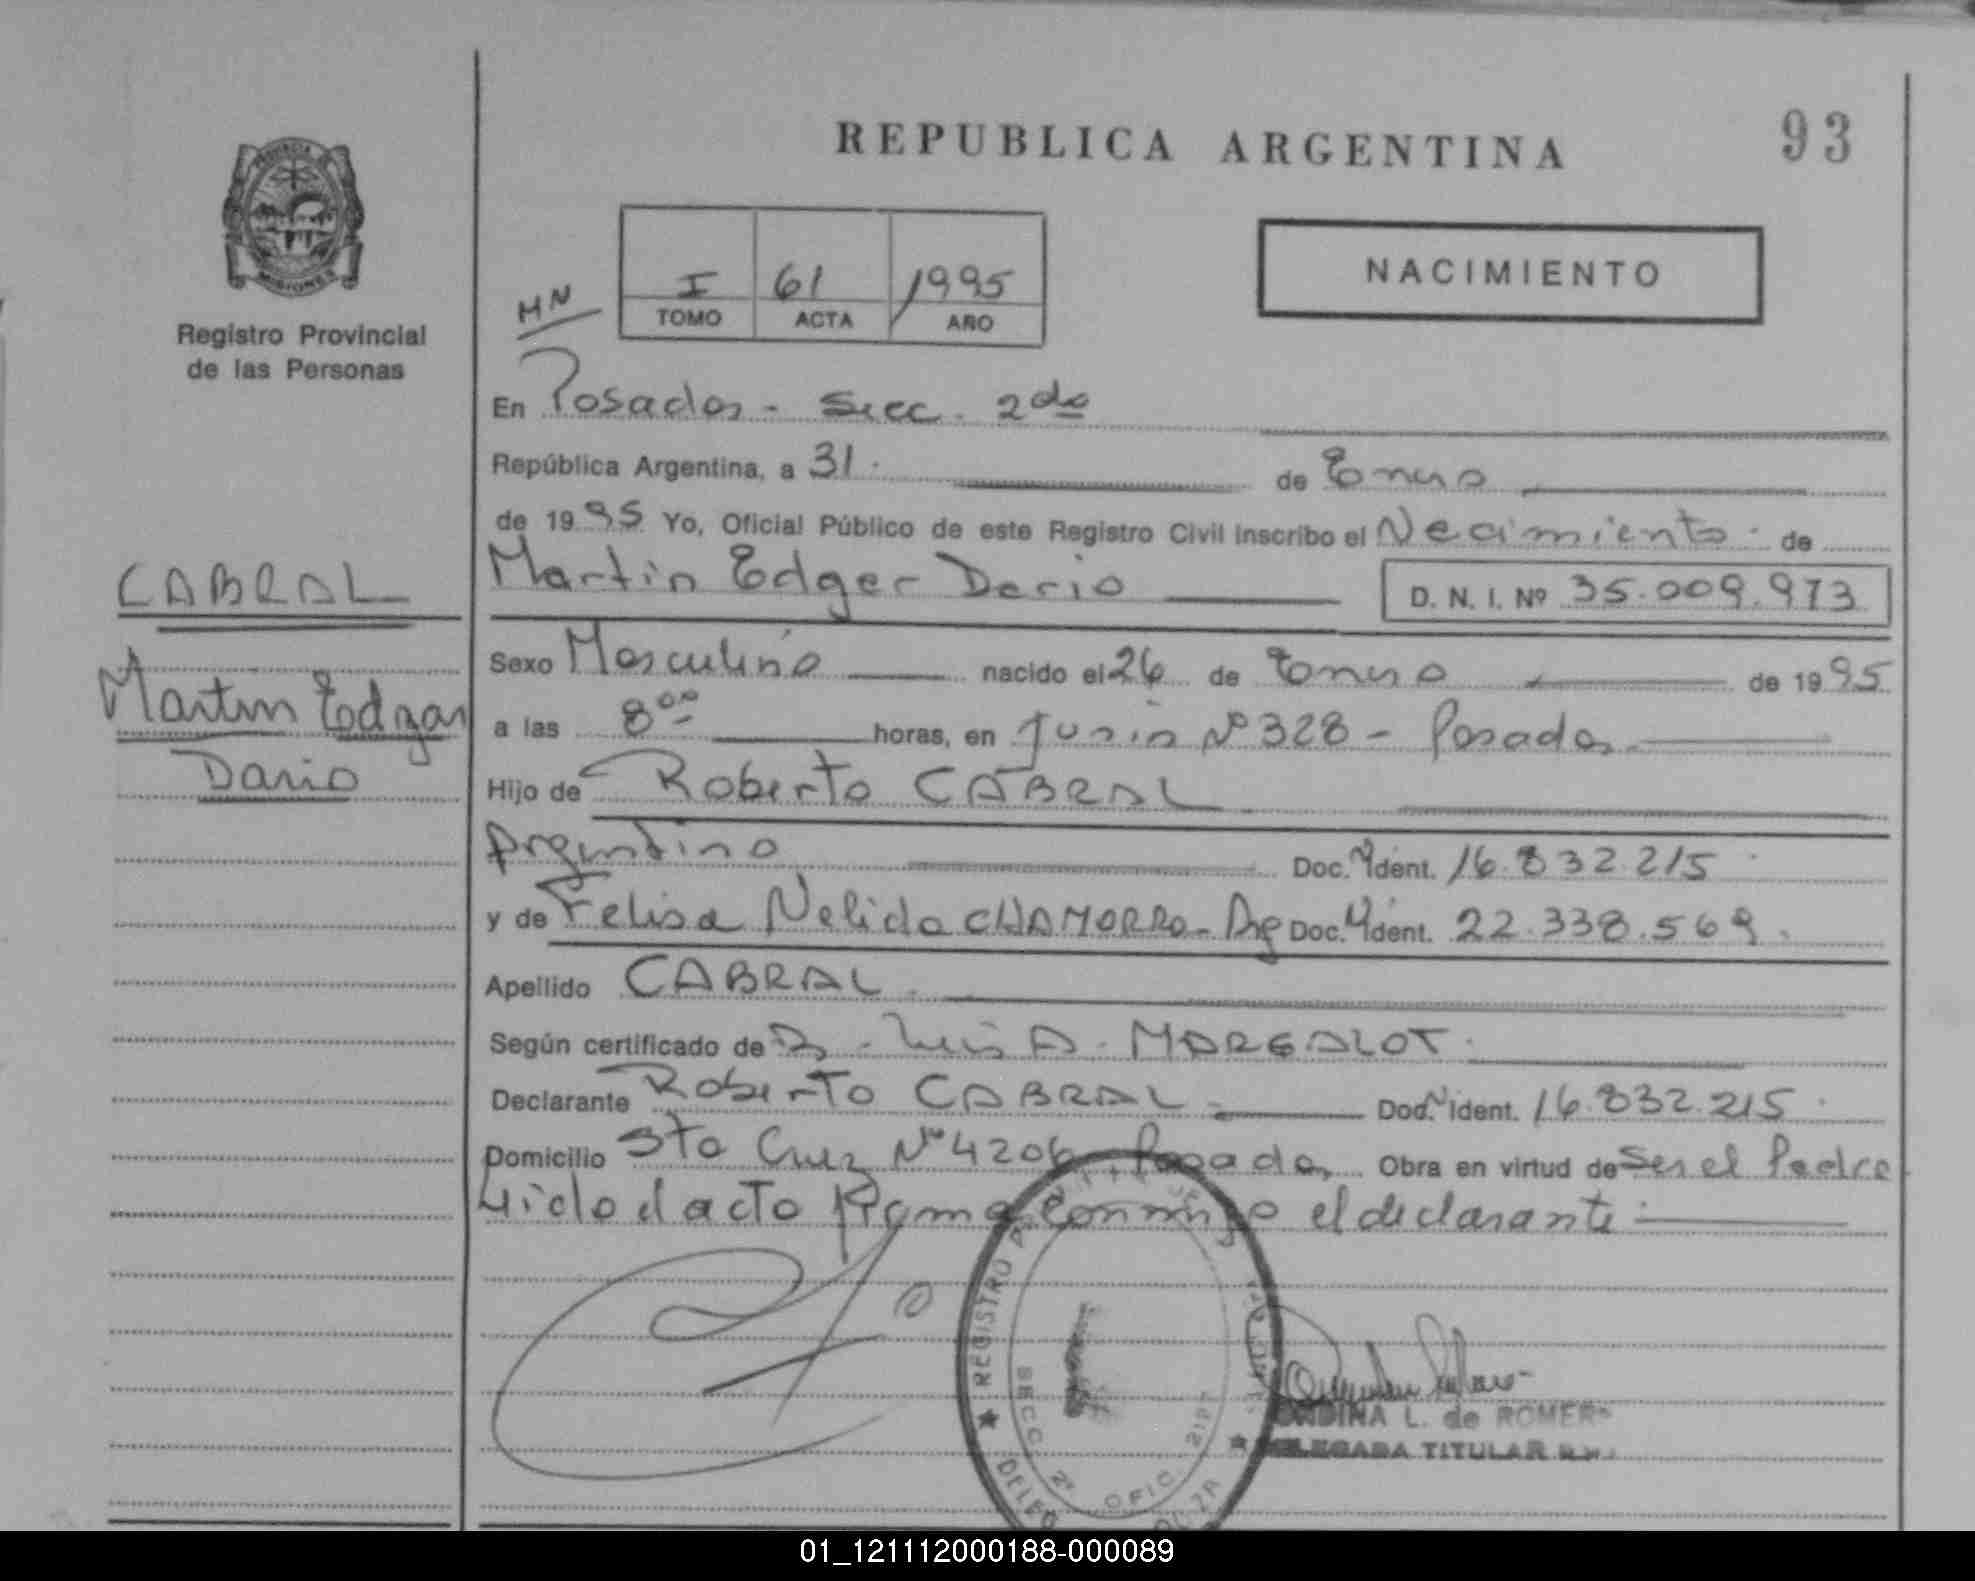 REPUBLICA ARGENTINA
93
PROVINCIA DE
MISIONES
Registro Provincial
de las Personas
I 61 1995
TOMO ACTA AÑO
NACIMIENTO
MN
En Posadas - Secc. 2da
República Argentina, a 31 de Enero
de 1995 Yo, Oficial Público de este Registro Civil inscribo el Nacimiento de
Martin Edgar Dario D. N. I. Nº 35.009.973
CABRAL
Martin Edgar
Dario
Sexo Masculino nacido el 26 de Enero de 1995
a las 8ºº horas, en Junin Nº 328 - Posadas
Hijo de Roberto CABRAL
Argentino Doc. N Ident. 16.832.215
y de Felisa Nelida CHAMORRO - Arg Doc. N Ident. 22.338.569.
Apellido CABRAL
Según certificado de Dr. Luis A. MARGALOT.
Declarante Roberto CABRAL Doc. N Ident. 16.832.215
Domicilio Sta Cruz Nº 4206 Posadas Obra en virtud de Ser el Padre
Leido el acto firma conmigo el declarante
REGISTRO
SECC. 2ª OFIC.
ONDINA L. de ROMERO
DELEGADA TITULAR
01_121112000188-000089